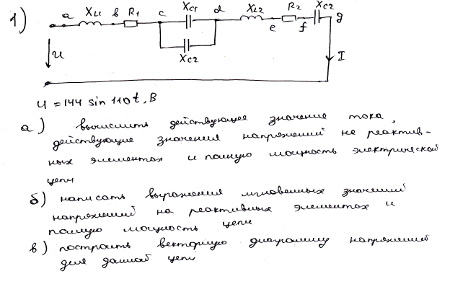 1)
a X_L1 в R1 c X_C1 d X_L2 e R2 f X_C2 g
X_C2
U I
U = 144 sin 110 t, В
а) вычислить действующее значение тока,
действующие значения напряжений не реактив-
ных элементах и полную мощность электрической
цепи
б) написать выражения мгновенных значений
напряжений на реактивных элементах и
полную мощность цепи
в) построить векторную диаграмму напряжений
для данной цепи